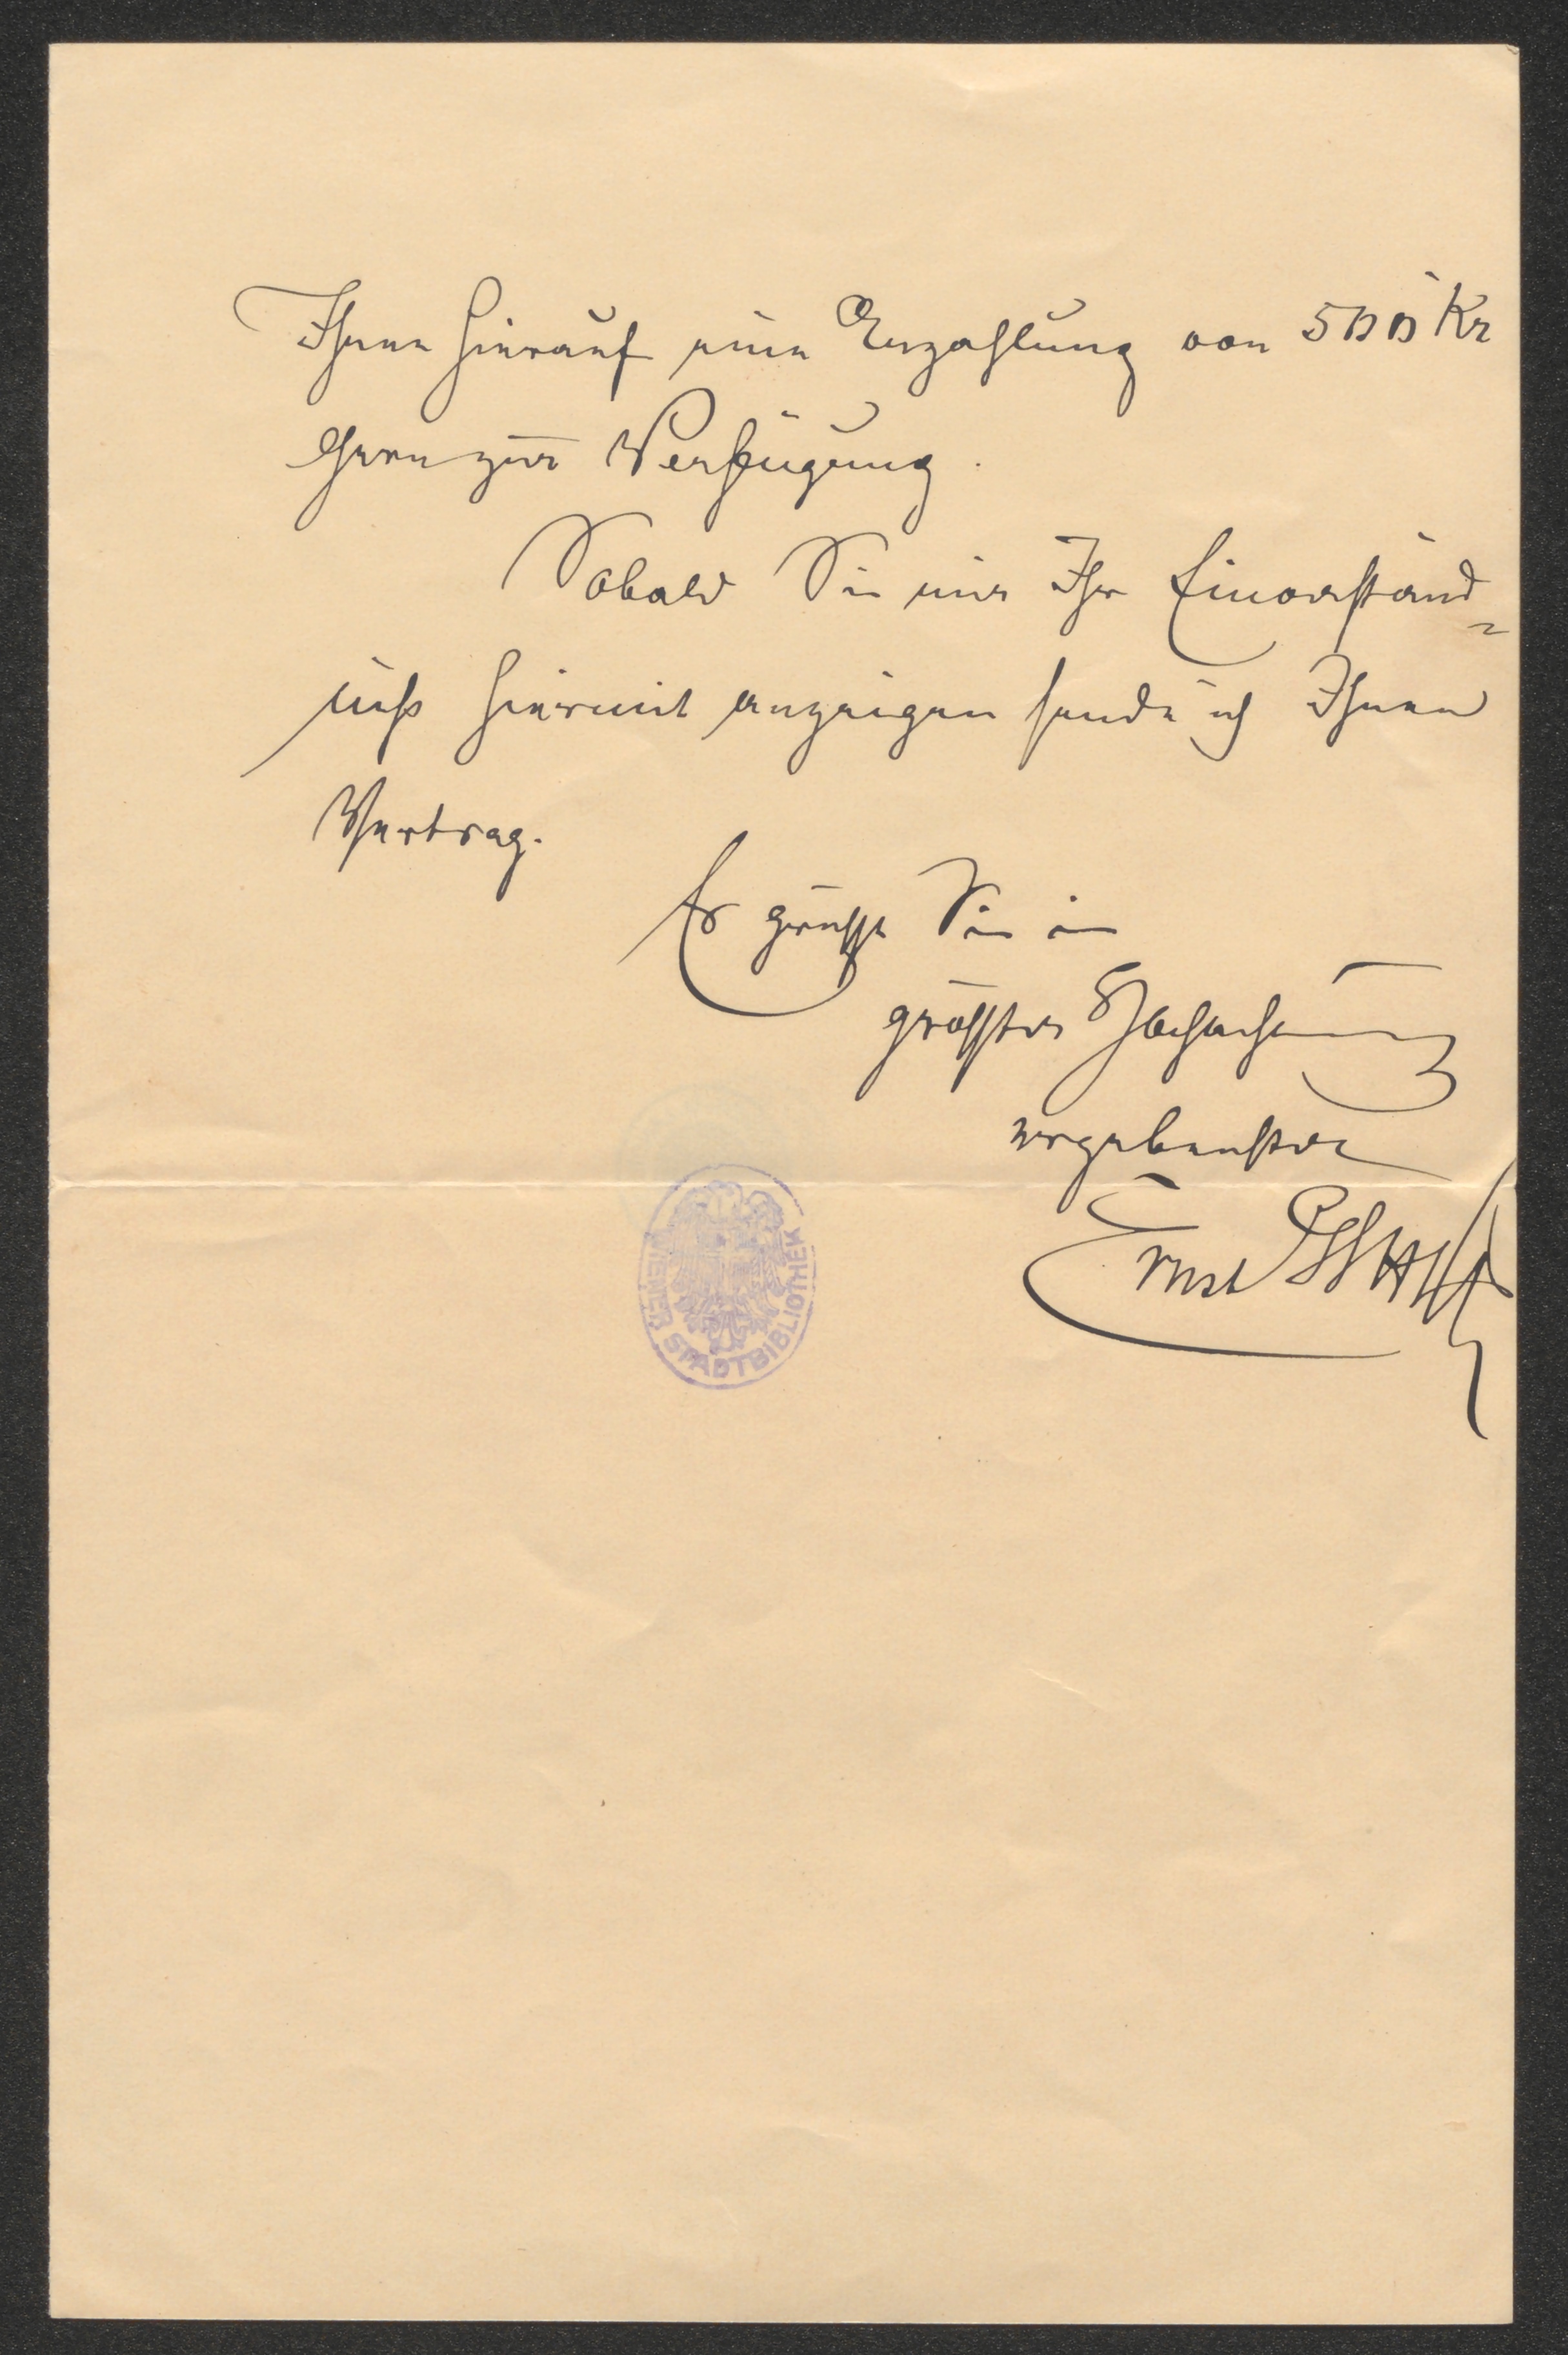 Ihnen hierauf eine Anzahlung von 500 Kr
gern zur Verfügung.
Sobald Sie mir Ihr Einverständ=
niß hiermit anzeigen sende ich Ihnen
Vertrag.
Es grüsst Sie in
grösster Hochachtung
ergebenster
Ernst
WIENER STADTBIBLIOTHEK